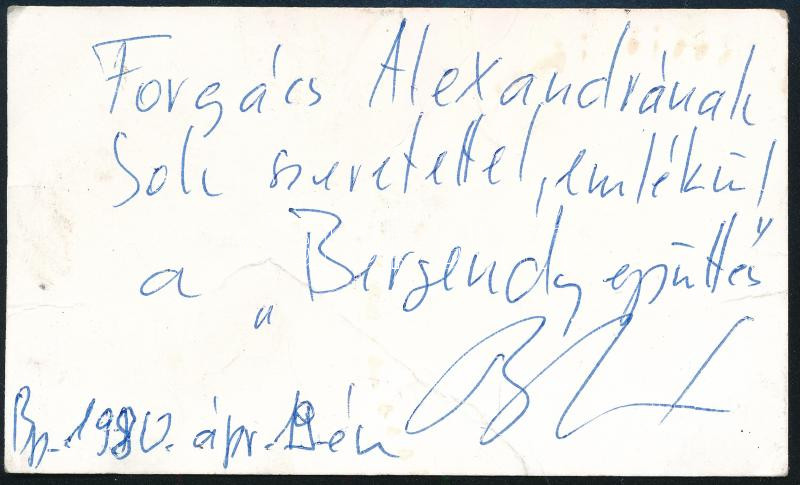 Forgács Alexandrának
Sok szeretettel, emlékül
a „Bergendy együttes"
Bp. 1980. ápr. 19-én